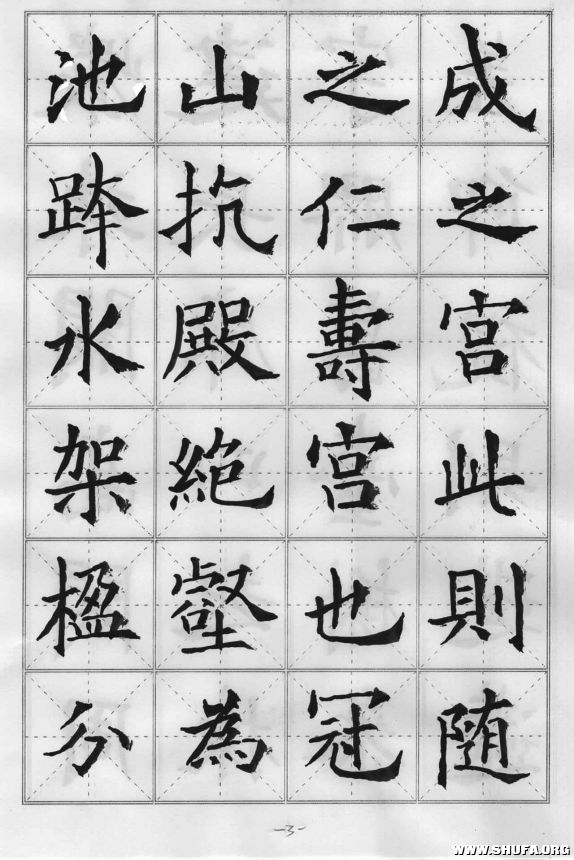 成之宫此則随
之仁壽宫也冠
山抗殿絶壑為
池跨水架楹分
-3-
WWW.SHUFA.ORG